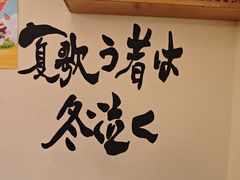 夏歌う者は
冬泣く